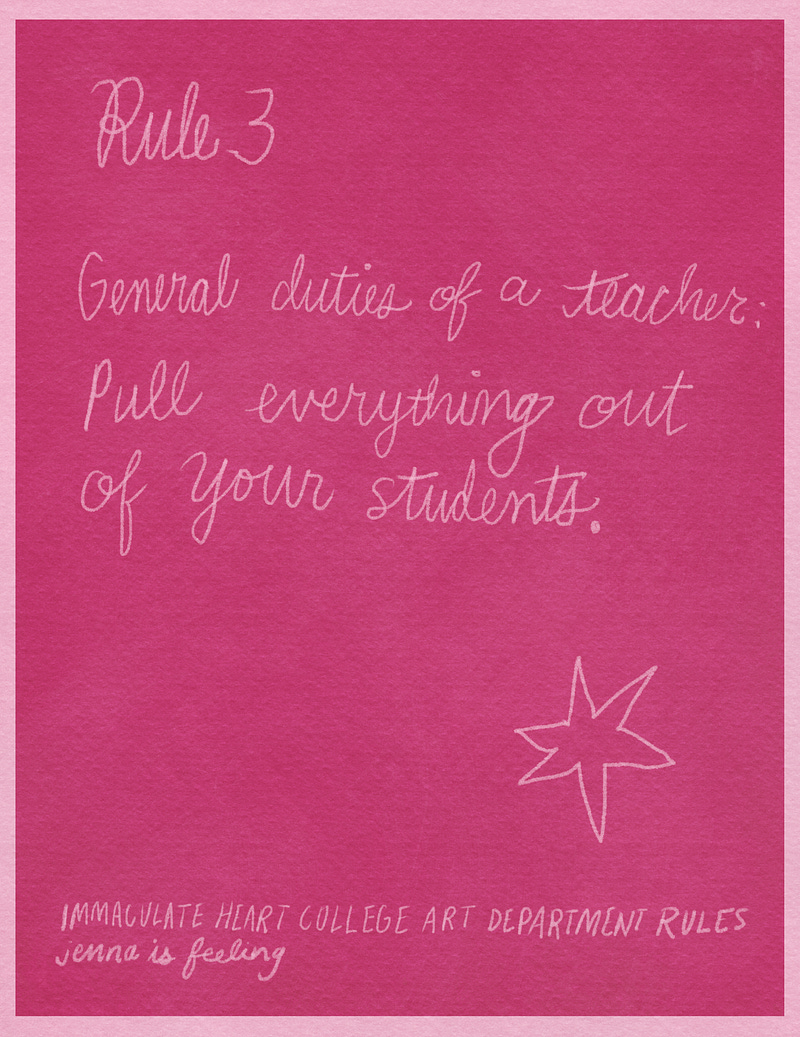 Rule 3
General duties of a teacher:
Pull everything out
of your students.
IMMACULATE HEART COLLEGE ART DEPARTMENT RULES
jenna is feeling